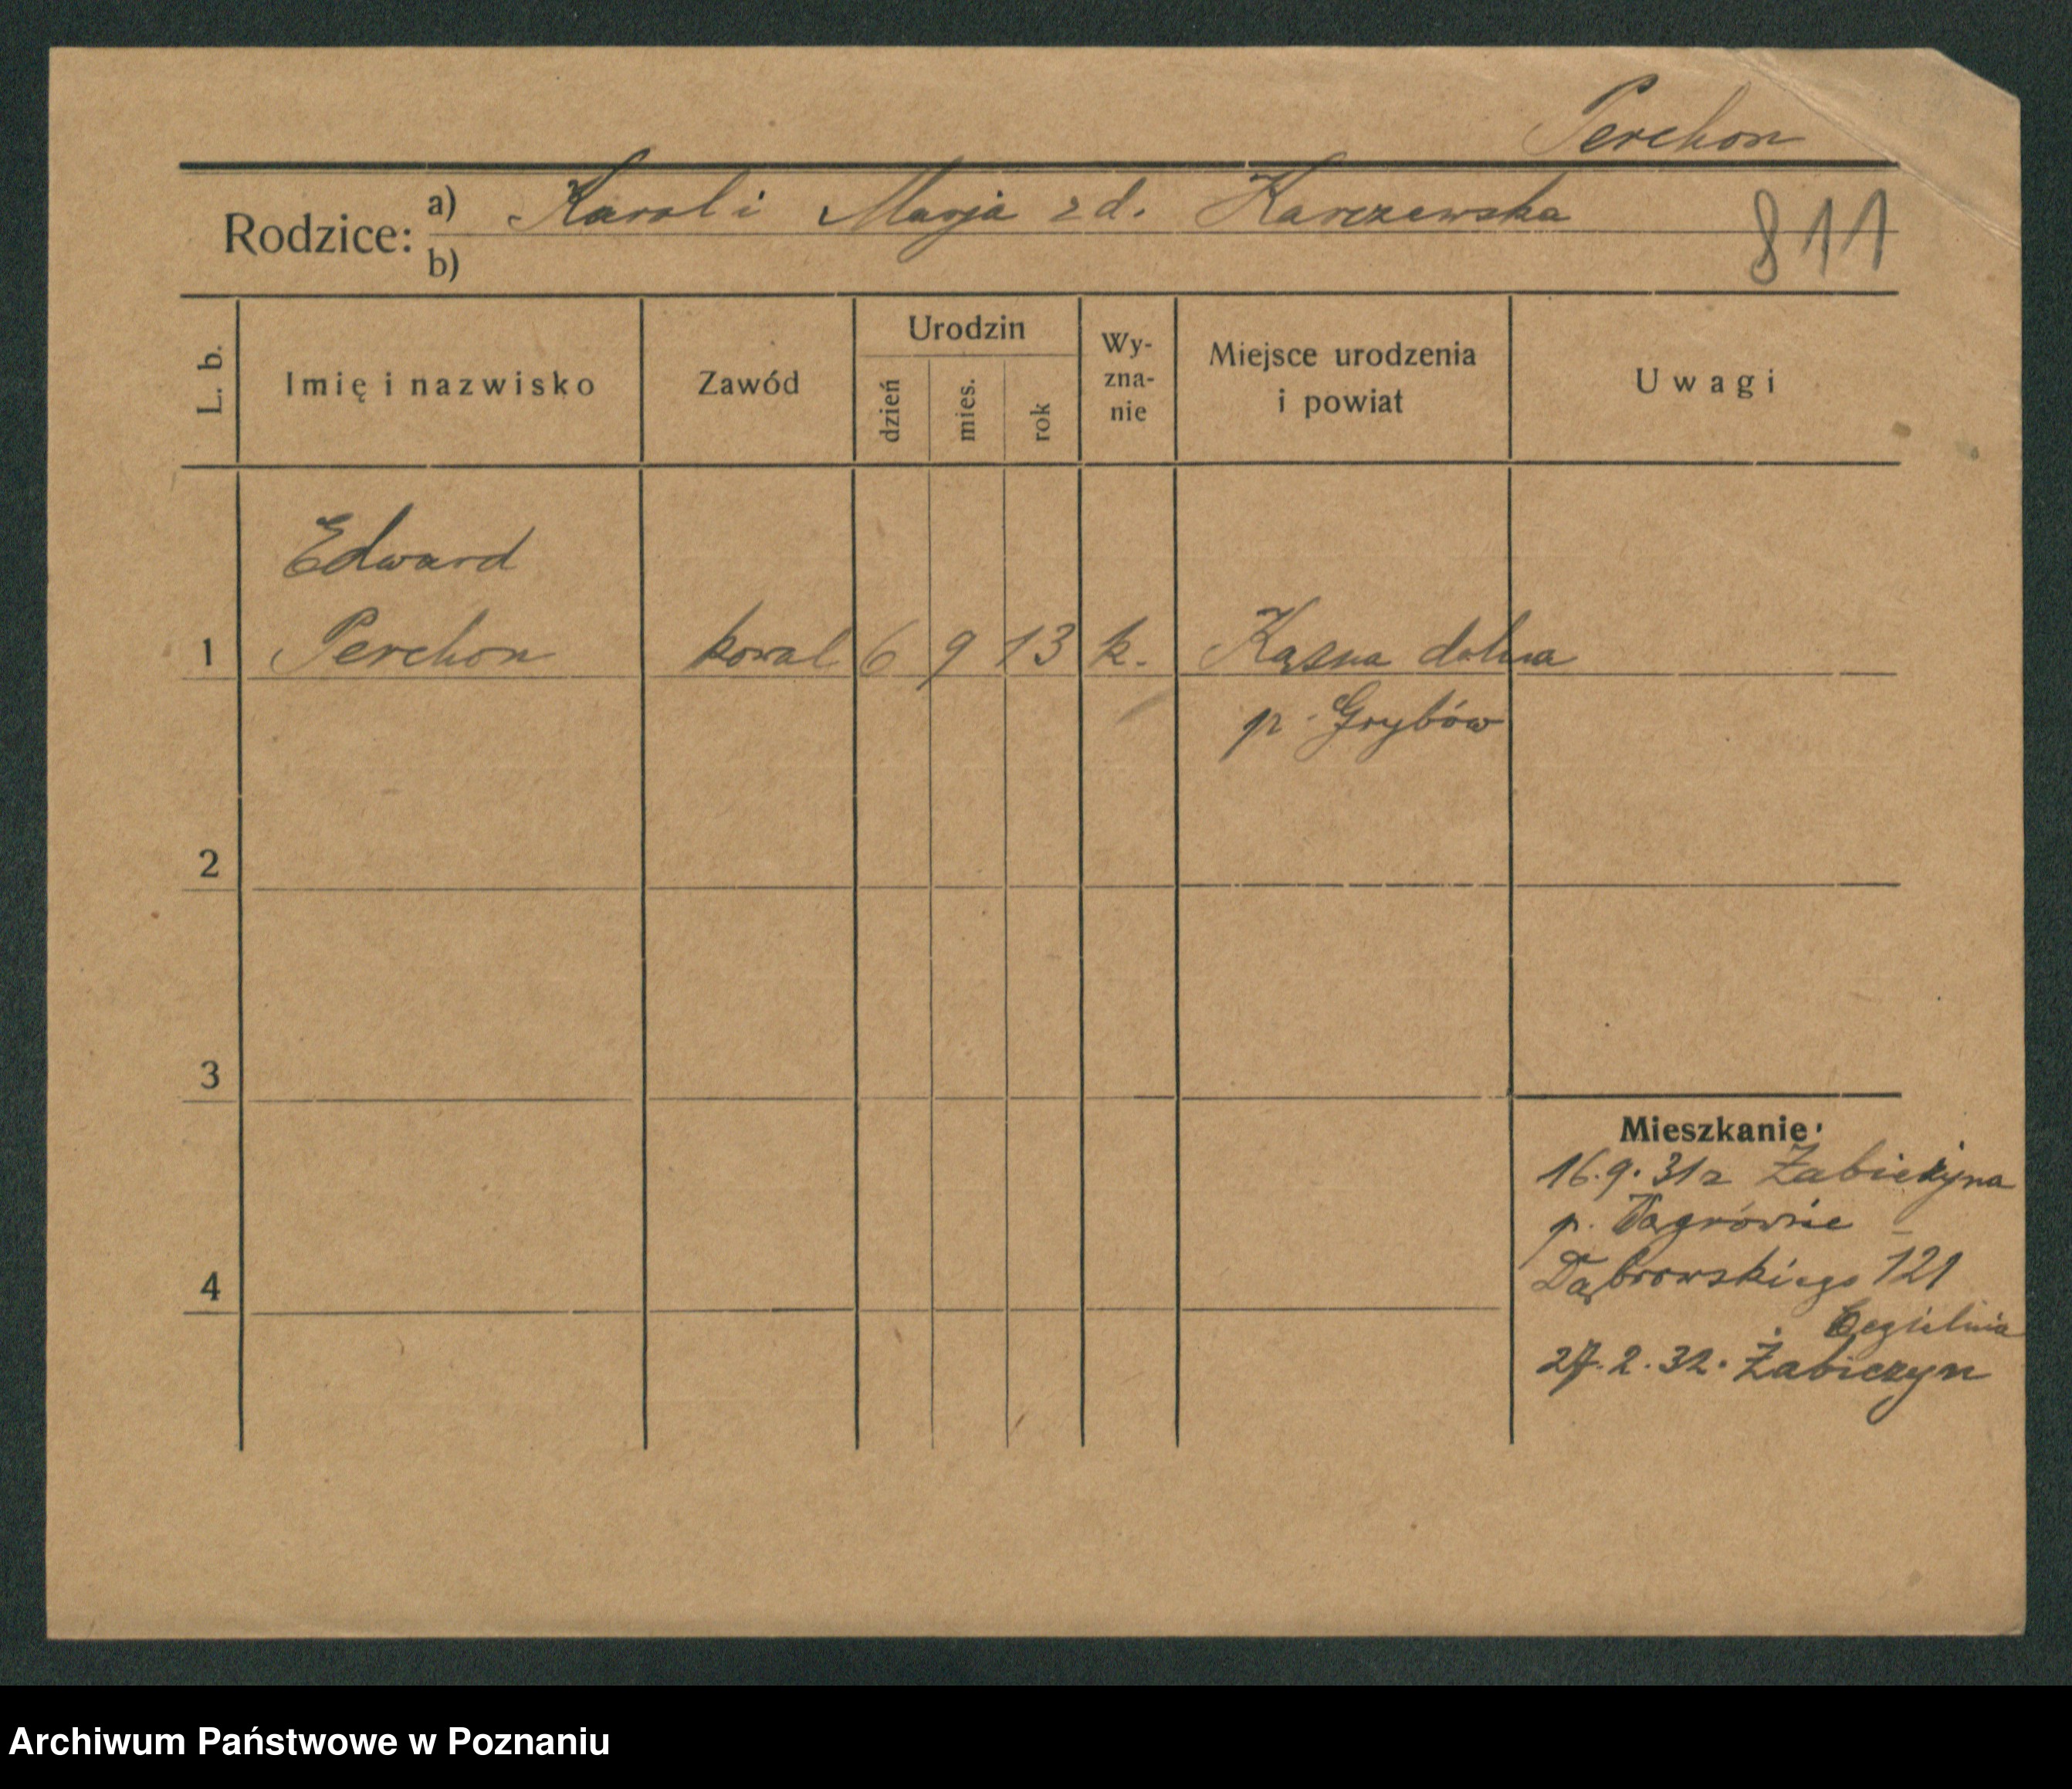 Perchon
Rodzice: a) Karol i Marja z d. Karczewska
b)
811
L. b. Imię i nazwisko Zawód Urodzin dzień mies. rok Wy-zna-nie Miejsce urodzenia i powiat Uwagi
Edward
1 Perchon kowal 6 9 13 k. Kąsna dolna
p. Grybów
2
3
Mieszkanie:
16.9.31 z Żabiczyna
p. Wągrówiec
4 Dąbrowskiego 121
Cegielnia
27.2.32. Żabiczyn
Archiwum Państwowe w Poznaniu